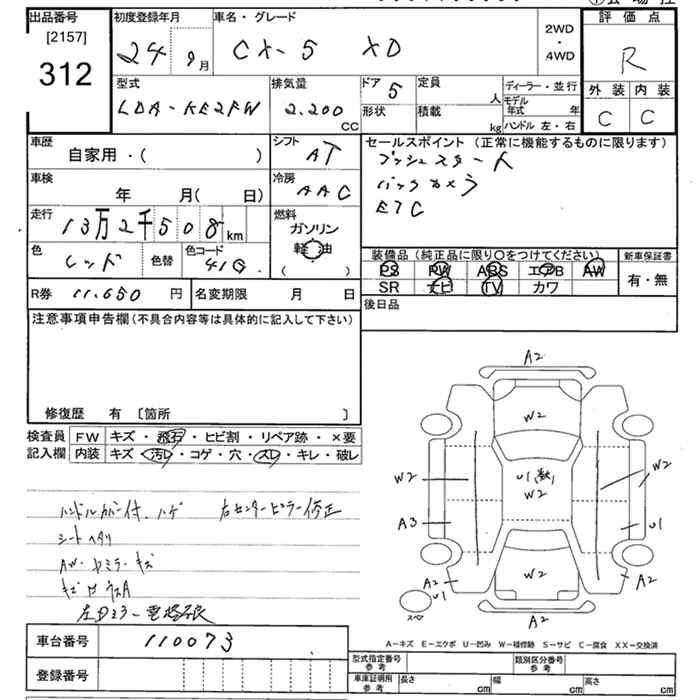 出品番号 初度登録年月 車名・グレード 評価点
[2157] 2WD
312 24 9月 CX-5 XD ・ R
4WD
型式 排気量 ドア 5 定員 人 ディーラー・並行 外装 内装
LDA-KE2FW 2.200 CC 形状 積載 kg モデル年式 年 C C
ハンドル 左・右
車歴 シフト セールスポイント (正常に機能するものに限ります)
自家用・( ) AT プッシュスタート
車検 冷房 バックカメラ
年 月( 日) AAC ETC
走行 燃料
13万2千508km ガソリン
色 色替 色コード 軽油 装備品 (純正品に限り○をつけてください) 新車保証書
レッド 41G ( ) PS PW ABS エアB AW 有・無
R券 11.650 円 名変期限 月 日 SR ナビ TV カワ
注意事項申告欄(不具合内容等は具体的に記入して下さい) 後日品
修復歴 有 〔箇所 〕
検査員 FW キズ・飛石・ヒビ割・リペア跡・×要
記入欄 内装 キズ・汚レ・コゲ・穴・スレ・キレ・破レ
ハンドルカバー付.ハゲ 右センターピラー修正
シートヘタリ
AW・ドアミラーキズ
左Dミラー電格不良
A2
W2
W2 U1(数) W2
W2
A3 U1
A2 W2 A2
U1
スペア A2
A-キズ E-エクボ U-凹み W-補修跡 S-サビ C-腐食 XX-交換済
車台番号 110073
登録番号
型式指定番号 参考 類別区分番号 参考
車庫証明用 参考 長さ cm 幅 cm 高さ cm